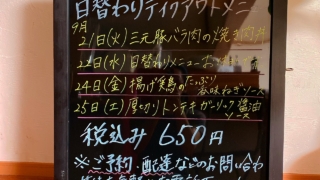 日替わりテイクアウトメニ
9月
21日(火) 三元豚バラ肉の焼き肉丼
22日(水) 日替わりメニューお
24日(金) 揚げ鶏のたっぷり香味ねぎソース
25日(土) 厚切りトンテキガーリック醤油ソース
税込み 650円
※ご予約、配達などのお問い合わ